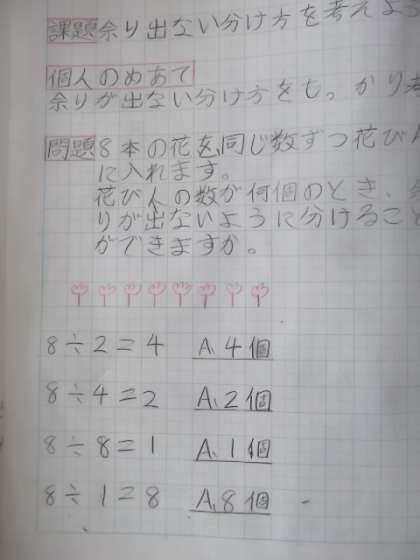 課題 余り出ない分け方を考えよう
個人のめあて
余りが出ない分け方をしっかり考
問題 8本の花を同じ数ずつ花びん
に入れます。
花びんの数が何個のとき、余
りが出ないように分けること
ができますか。
8÷2=4 A、4個
8÷4=2 A、2個
8÷8=1 A、1個
8÷1=8 A、8個